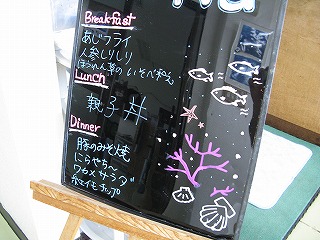 Breakfast
あじフライ
人参しりしり
ほうれん草のいそべ和え
Lunch
親子丼
Dinner
豚のみそ焼
にらやちー
ワカメサラダ
紅イモチップ